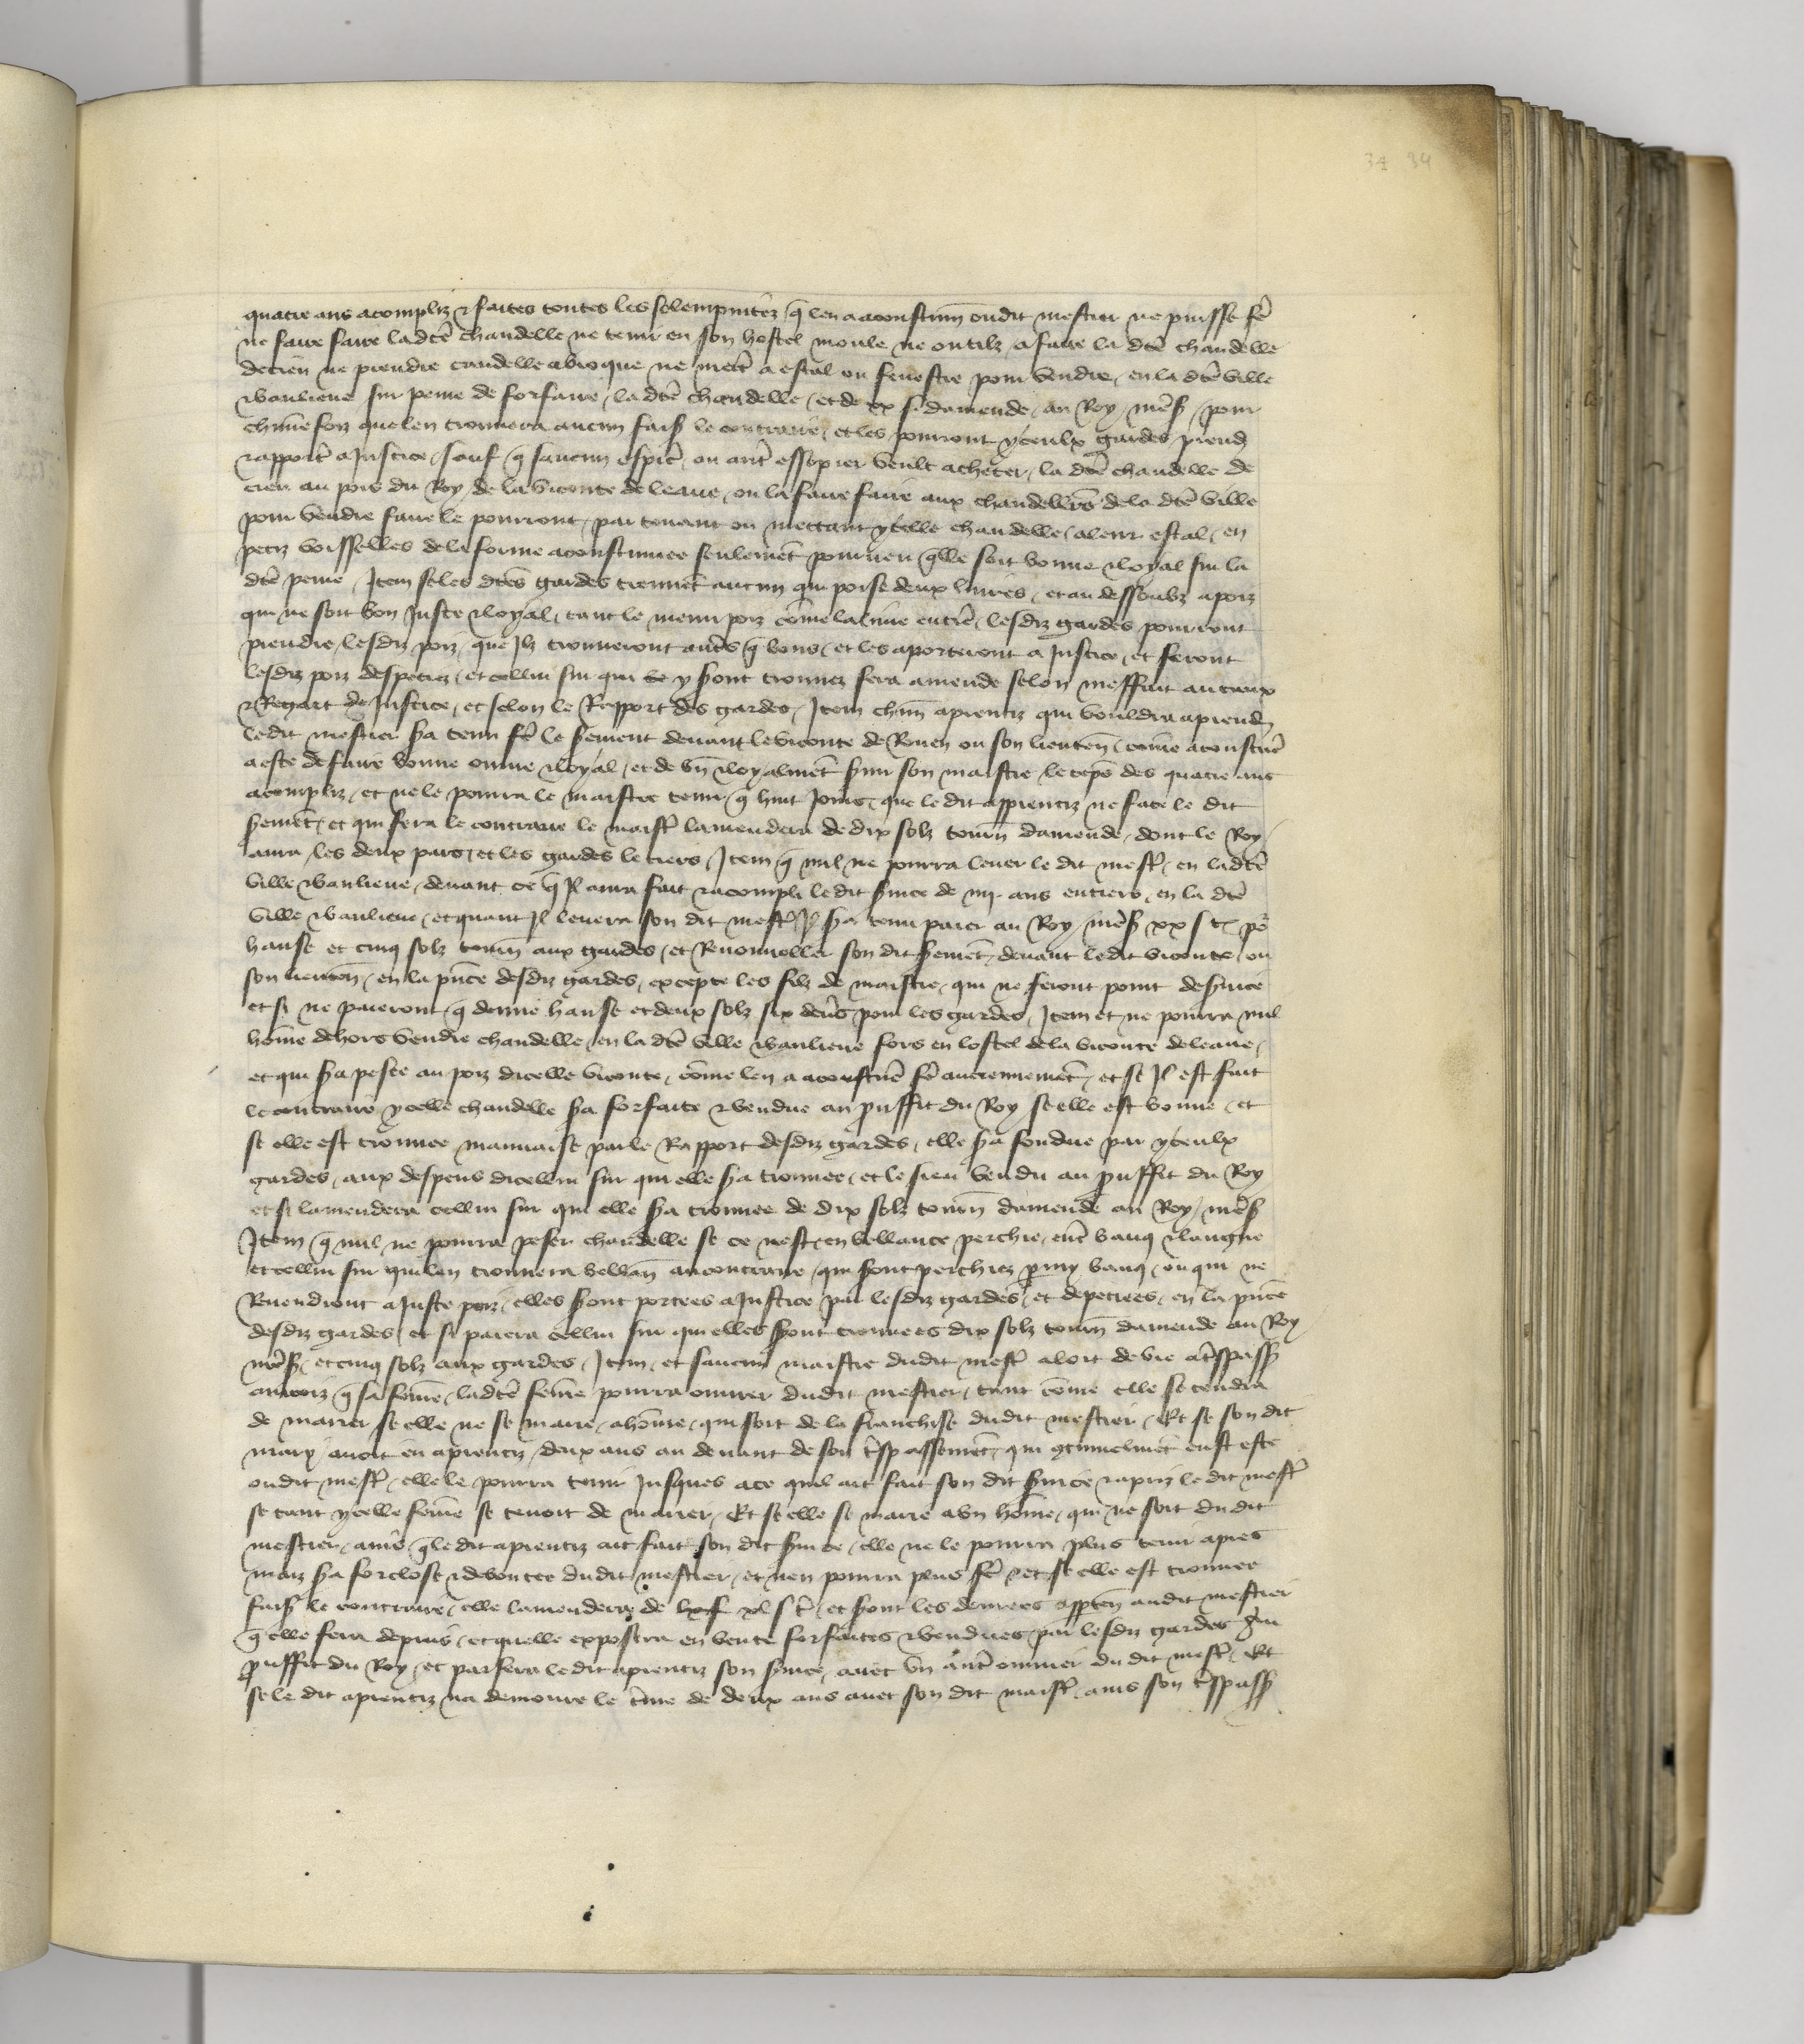 34 34
quatre ans acompliz & faites toutes les solempnitez q̄ len a acoustum̄ oudit mestier ne puisse fē
ne faire faire ladtē chandelle ne tenir en son hostel moule ne outilz a faire la dtē chandelle
de cien ne prendre candelle a broque ne mett̄ a estal ou fenestre pour vendre en la dtē ville
& banlieue sur peine de forfaire la dtē chandelle et de damende au Roy nrē s̄ pour
chūne foiz que len trouuera aucun fais̄ le contraire et les pourront yceulx gardes prend̄
& apport̄ a justice sauf q̄ saucun espic̄ ou aut̄ essopier veult acheter la dtē chandelle de
cien au pois du Roy de la viconte de leaue ou la faire faire aux chandell̄rs de la dtē ville
pour vendre faire le pourront par tenant ou mettant ycelle chandelle a leur estal en
petiz voisselles de la forme acoustumee seulemēt pourueu q̄lle soit bonne & loyal sur la
dtē peine Item se les dtēs gardes treuuēt aucun qui poise deux liures et au dessoubz a poiz
qui ne soit bon juste & loyal tant le menu poiz cōme la liure entiē lesdiz gardes pourront
prendre lesdiz poiz que Jlz trouueront aut̄s q̄ bons et les aporteront a justice et seront
lesdiz poiz despeciez et cellui sur qui y sont trouuez fera amende selon meffait au taux
& Regart de Justice et selon le Rapport des gardes Item chūn aprentiz qui vouldra aprend̄
ledit mestier s̄a tenu fē le s̄ement deuant le viconte de Rouen ou son lieuten̄ cōme acoustūe
a este de faire bonne euure & loyal et de bn̄ & loyalmēt s̄uir son maistre le tēps des quatre ans
acompliz et ne le pourra le maistre tenir q̄ huit Jours que le dit apprentiz ne face le dit
s̄emēt et qui fera le contraire le maist̄ lamendera de dix solz tourn̄ damende dont le Roy
aura les deux pars et les gardes le tiers Item q̄ nul ne pourra leuer le dit mest̄ en ladtē
ville & banlieue deuant ce q̄ Jl aura fait & acompli le dit s̄uice de iiij ans entiers en la dtē
ville & banlieue et quant Jl leuera son dit mest̄ Jl s̄a tenu paier au Roy nrē s̄ xx s t̄ po᷑
hanse et cinq solz tourn̄ aux gardes et Renouueller son dit s̄emēt deuant ledit viconte ou
son lieuten̄ en la pn̄ce desdiz gardes excepte les filz de maistre qui ne feront point de s̄uice
et si ne paieront q̄ demie hanse et deux solz six den̄s pour les gardes Item et ne pourra nul
hōme dehors vendre chandelle en la dtē ville & banlieue fors en lostel de la viconte de leaue
et qui s̄a pesee au poiz dicelle viconte cōme len a acoustūe fē anciennemēt et se Jl est fait
le contraire ycelle chandelle s̄a forfaite & vendue au prouffit du Roy se elle est bonne et
se elle est trouuee mauuaise par le Rapport desdiz gardes elle s̄a fondue par yceulx
gardes aux despens dicellui sur qui elle s̄a trouuee et le sieu vendu au prouffit du Roy
et si lamendera cellui sur qui elle s̄a trouuee de dix solz tourn̄ damende au Roy nrē s̄
Item q̄ nul ne pourra peser chandelle se ce nest en bellance perchie ent̄ banq & langue
et cellui sur qui len trouuera bellan̄ au contraire qui sont perchiez parmy banq ou qui ne
Reuendront a juste poiz elles s̄ont portees a Justice par lesdiz gardes et depeciees en la pn̄ce
desdiz gardes et si paiera cellui sur qui elles s̄ont trouuees dix solz tourn̄ damende au Roy
nrē s̄ et cinq solz aux gardes Item et saucun maistre dudit mest̄ aloit de vie a t̄spass̄
aincoiz q̄ sa fēme ladtē fēme pourra ouurer dudit mestier tant cōme elle se tendra
de marier se elle ne se marie a hōme qui soit de la franchise dudit mestier Et se son dit
mary auoit eu aprentiz deux ans au deuant de son t̄spassemēt qui 9tinuelmēt eust este
oudit mest̄ elle le pourra tenir jusques a ce quil ait fait son dit s̄uice & apriz le dit mest̄
se tant ycelle fēme se tenoit de marier Et se elle se marie a vn hōme qui ne soit du dit
mestier ains q̄ le dit aprentiz ait fait son dit s̄uice elle ne le pourra plus tenir apres
maiz s̄a forclose & deboutee dudit mestier et nen pourra plus fē et se elle est trouuee
fais̄ le contraire elle lamendera de xl s t̄ et s̄ont les denrees apparten̄ audit mestier
q̄ elle fera depuis et quelle exposera en vente forfaites & vendues par lesdiz gardes au
prouffit du Roy et parfera ledit aprentiz son s̄uice auec vn aut̄ ouurier du dit mest̄ Et
se le dit aprentiz na demoure le t̄me de deux ans auec son dit maist̄ ains son t̄spass̄